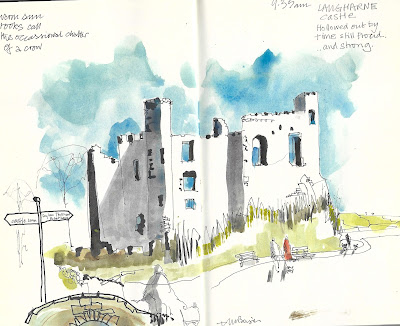 warm sun
rooks call
the occassional chatter
of a crow
9.35am
LAUGHARNE
castle
Hollowed out by
time still proud
..and strong.